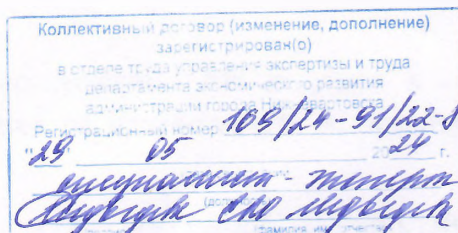 Коллективный договор (изменение, дополнение)
зарегистрирован(о)
в отделе труда управления экспертизы и труда
департамента экономического развития
администрации города Нижневартовска
Регистрационный номер 109/24-91/22-8
"29 05 2024 г.
специалист - эксперт
(должность)
(фамилия, имя, отчество)